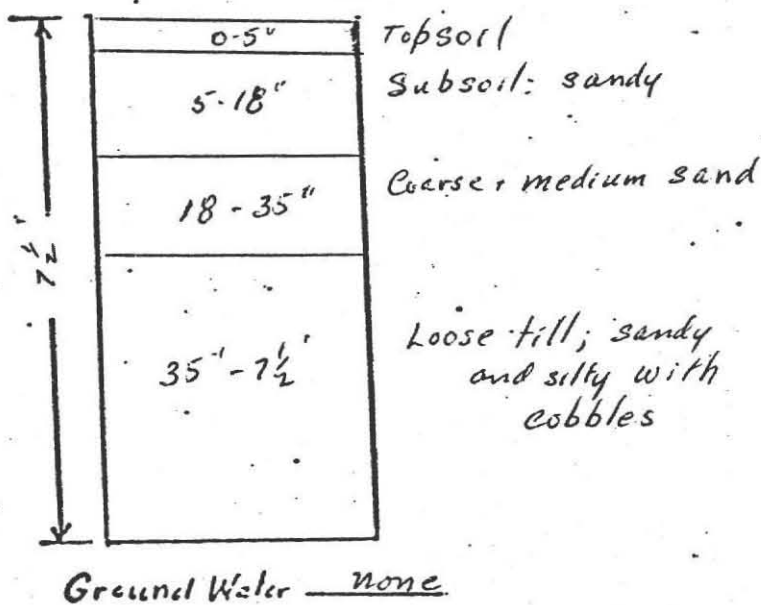 0-5" Topsoil
5-18" Subsoil: sandy
18-35" Coarse + medium sand
7 1/2'
35" - 7 1/2' Loose till; sandy
and silty with
cobbles
Ground Water none